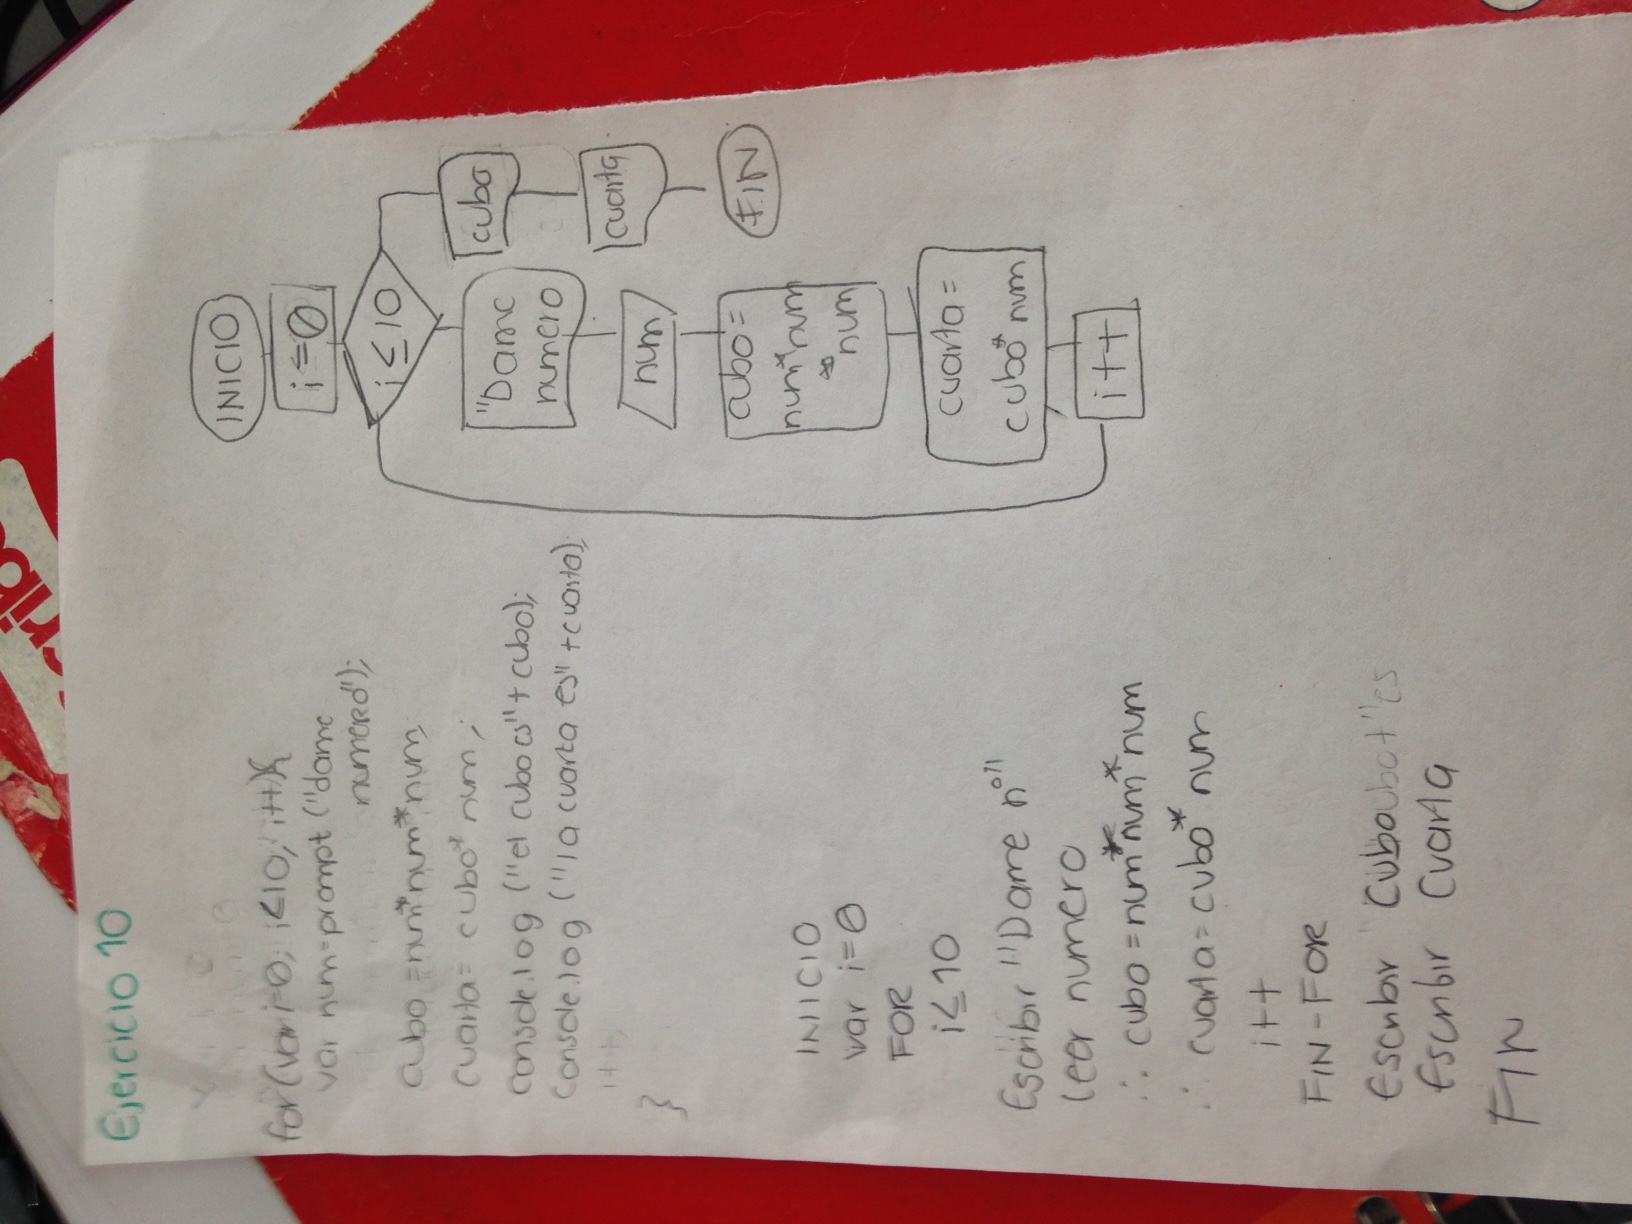 Ejercicio 10
for(var i=0; i≤10; i++){
var num=prompt ("dame
numero");
cubo =num*num*num;
cuarta= cubo* num;
console.log ("el cubo es"+cubo);
console.log ("la cuarta es"+cuarta);
i++;
}
INICIO
var i=0
FOR
i≤10
Escribir "Dame n°"
leer numero
∴ cubo=num*num*num
∴ cuarta=cubo*num
i++
FIN-FOR
Escribir cubo
Escribir cuarta
FIN
INICIO
i=0
i≤10
"Dame
numero
num
cubo=
num*num
*num
cuarta=
cubo*num
i++
cubo
cuarta
FIN